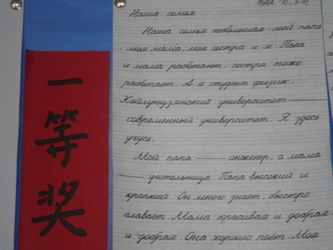 一等奖
Наша семья
Наша семья небольшая: мой папа,
моя мама, моя сестра и я. Папа
и мама работают, сестра тоже
работает. А я студент физик.
Хэйлунцзянский университет —
современный университет. Я здесь
учусь.
Мой папа — инженер, а мама
— учительница. Папа высокий и
крепкий. Он много знает, быстро
плавает. Мама красивая и добрая
и добрая. Она хорошо поёт. Моя